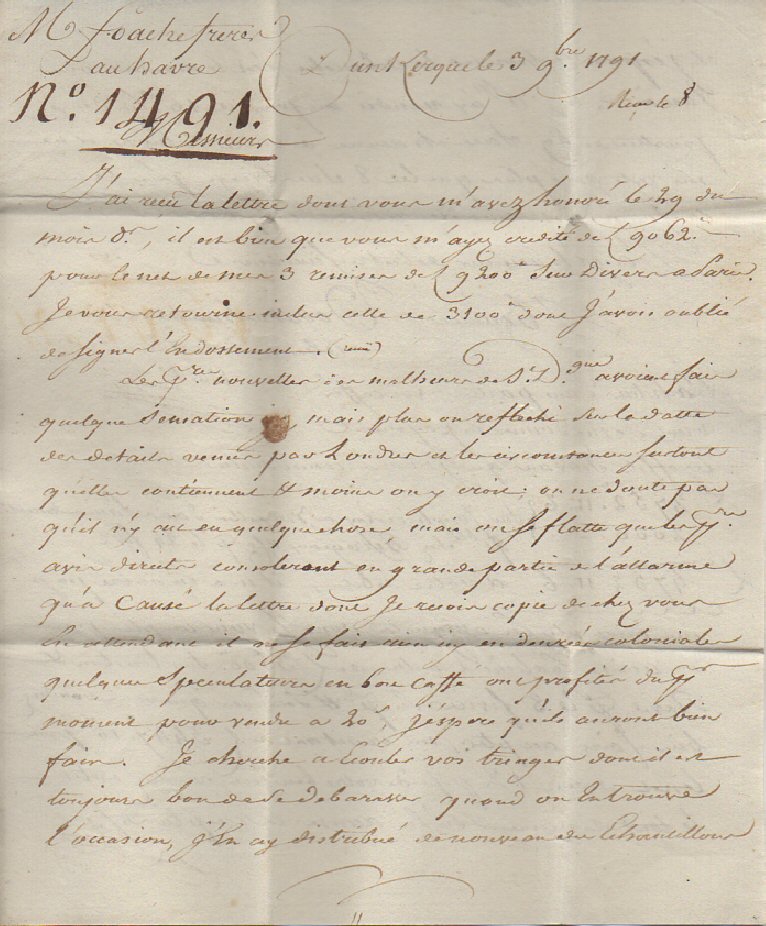 Mrs foache freres
au havre
Dunkerque le 3 9bre 1791
Reçu le 8
No. 1491.
Messieurs
J'ai recu la lettre dont vous m'avez honoré le 29 du
mois dr, il est bien que vous m'ayez credité de 9062
pour le net de mes 3 remises de 9200 sur Divers a Paris.
Je vous retourne inclus celle de 3100 dont J'avois oublié
de signer l'Endossement.
Les pres nouvelles des malheurs de St. Dgue avoient fait
quelque sensation mais plus on reflechi sur la datte
des details venus par Londres et les circonstances surtout
qu'elles contiennent & moins on y croit; on ne doute pas
qu'il n'y ait eu quelque chose mais on se flatte que les prs
avis directs consoleront en grande partie de l'allarme
qu'a causé la lettre dont Je recois copie de chez vous
En attendant il ne se fait rien icy en denrées coloniales
quelques speculateurs en bon caffé ont profité du pr
moment pour vendre a 20s, J'espere qu'ils auront bien
fait. Je cherche a Ecouler vos tringes dont il est
toujours bon de se debarasser quand on En trouve
l'occasion, j'En ay distribué de nouveau des Echantillons